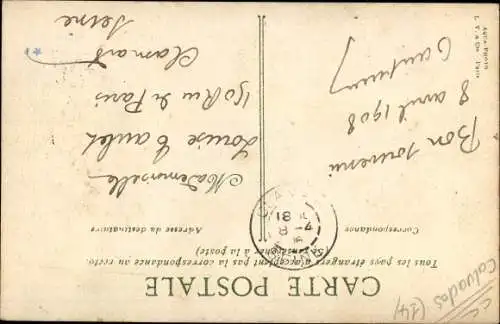 CARTE POSTALE
Tous les pays étrangers n'acceptent pas la correspondance au recto.
(Se renseigner à la poste)
Correspondance
Adresse du destinataire
Bon souvenir
8 avril 1908
Mademoiselle
Louise Caulet
150 Rue de Paris
Clamart
Seine
Calvados (14)